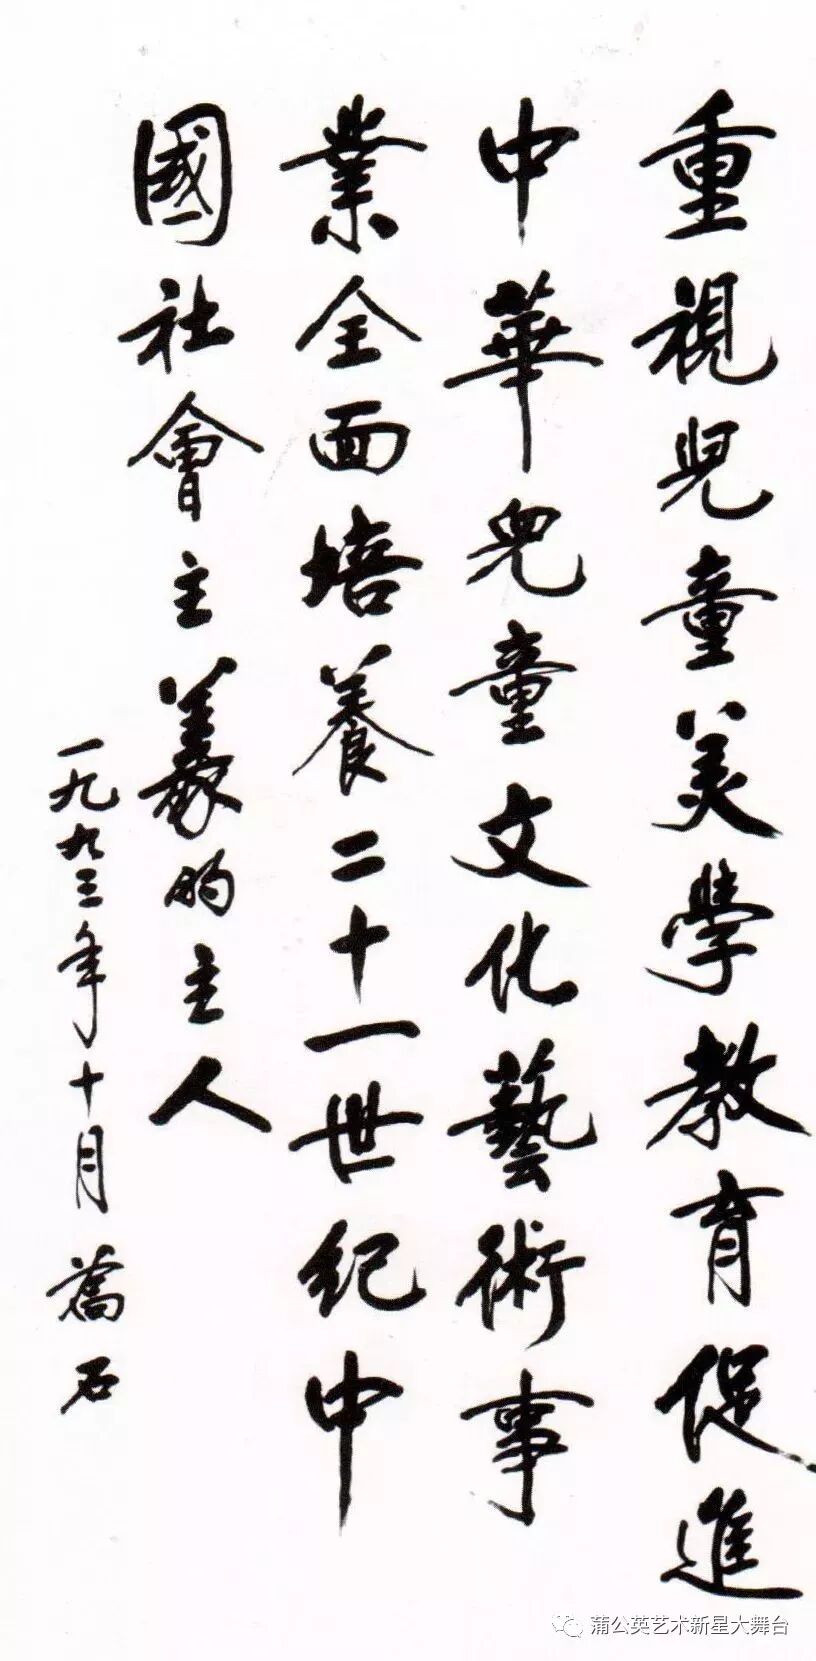 重視兒童美學教育促進
中華兒童文化藝術事
業全面培養二十一世紀中
國社會主義的主人
一九九三年十月 喬石
蒲公英艺术新星大舞台